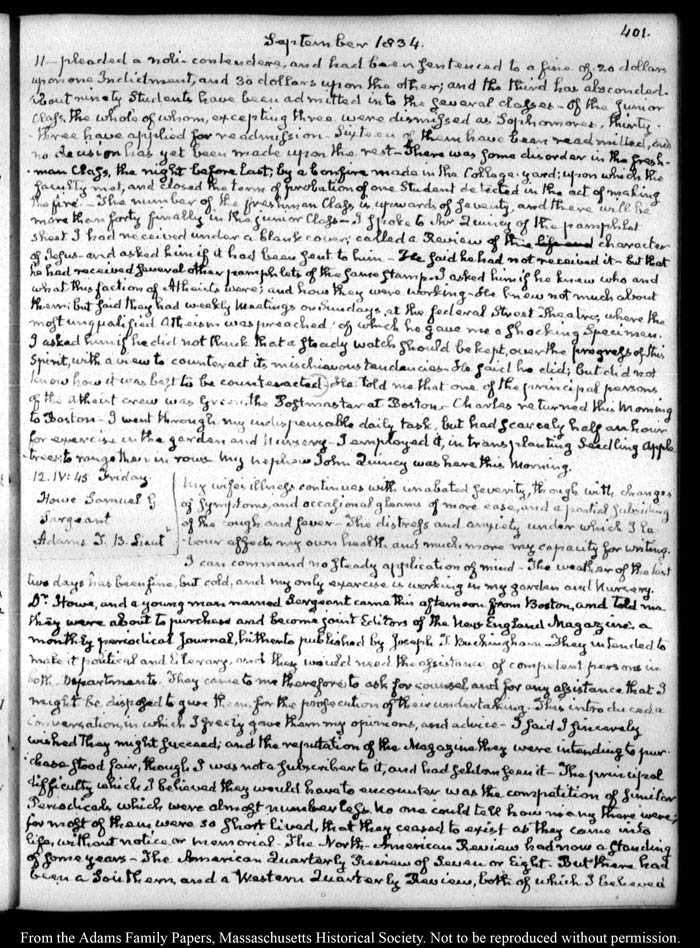 401.
September 1834.
11— pleaded a noli-contendere, and had been sentenced to a fine of 20 dollars
upon one Indictment, and 30 dollars upon the other; and the third has absconded.
About ninety Students have been admitted into the several classes— Of the junior
Class, the whole of whom, excepting three were dismissed as Sophomores, thirty-
-three have applied for readmission— Sixteen of them have been readmitted, and
no decision has yet been made upon the rest— There was some disorder in the Fresh-
-man Class, the night before last, by a bonfire made in the College-yard; upon which the
faculty met, and closed the term of probation of one Student detected in the act of making
the fire— The number of the freshman Class is upwards of seventy, and there will be
more than forty finally in the junior Class— I spoke to Mr Quincy of the pamphlet
sheet I had received under a blank cover, called a Review of the life and character
of Jesus— and asked him if it had been sent to him— He said he had not received it— but that
he had received several other pamphlets of the same stamp— I asked him if he knew who and
what this faction of Atheists were; and how they were working— He knew not much about
them; but said they had weekly meetings on Sundays, at the federal Street Theatre, where the
most unqualified Atheism was preached; of which he gave me a shocking specimen.
I asked him if he did not think that a steady watch should be kept, over the progress of this
Spirit, with a view to counteract its mischievous tendencies— He said he did; but did not
know how it was best to be counteracted— He told me that one of the principal persons
of the Atheist crew was Green, the Postmaster at Boston— Charles returned this Morning
to Boston— I went through my indispensable daily task, but had scarcely half an hour
for exercise in the garden and Nursery— I employed it, in transplanting Seedling Apple
trees to range them in rows. My nephew John Quincy was here this Morning.
12. IV: 45 Friday.
Howe Samuel G
Sargeant
Adams T. B. Lieut
My wife's illness continues with unabated severity, though with changes
of Symptoms, and occasional gleams of more ease, and a partial subsiding
of the cough and fever— The distress and anxiety under which I la-
-bour affects my own health, and much more my capacity for writing.
I can command no steady application of mind— The weather of the last
two days has been fine, but cold, and my only exercise is working in my garden and Nursery.
Dr Howe, and a young man named Sergeant came this afternoon from Boston, and told me
they were about to purchase and become joint Editors of the New England Magazine, a
monthly periodical Journal, hitherto published by Joseph T. Buckingham— They intended to
make it political and literary, and they would need the assistance of competent persons in
both Departments. They came to me therefore to ask for counsel, and for any assistance that I
might be disposed to give them, for the prosecution of their undertaking— This introduced a
Conversation, in which I freely gave them my opinions, and advice— I said I sincerely
wished they might succeed; and the reputation of the Magazine they were intending to pur-
-chase stood fair, though I was not a subscriber to it, and had seldom seen it— The principal
difficulty which I believed they would have to encounter was the competition of similar
Periodicals, which were almost numberless. No one could tell how many there were;
for most of them were so short lived, that they ceased to exist as they came into
life, without notice, or memorial— The North-American Review had now a standing
of some years— The American Quarterly Review of Seven or Eight. But there had
been a Southern, and a Western Quarterly Review, both of which I believed
From the Adams Family Papers, Massachusetts Historical Society. Not to be reproduced without permission.